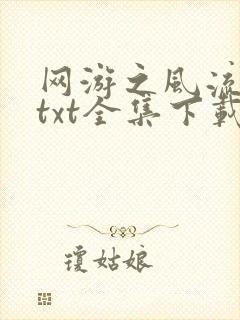 网游之风流
txt全集下載
瓊姑娘